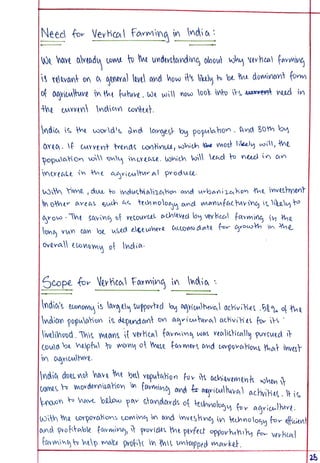 Need for Vertical Farming in India :
We have already come to the understanding about why vertical farming
is relevant on a general level and how it's likely to be the dominant form
of agriculture in the future. We will now look into its need in
the current Indian context.
India is the world's 2nd largest by population. And 8oth by
area. If current trends continue, which the most likely will, the
population will only increase. Which will lead to need in an
increase in the agricultural produce.
With time, due to industrialization and urbanization the investment
in other areas such as technology and manufacturing is likely to
grow. The saving of resources achieved by vertical farming in the
long run can be used elsewhere accomodate for growth in the
overall economy of India.
Scope for Vertical Farming in India :
India's economy is largely supported by agricultural activities. 58% of the
Indian population is dependant on agricultural activities for its
livelihood. This means if vertical farming was realistically pursued it
could be helpful to many of these farmers and corporations that invest
in agriculture.
India does not have the best reputation for its achievements when it
comes to modernisation in farming and agricultural activities. It is
known to have below par standards of technology for agriculture.
With the corporations coming in and investing in technology for efficient
and profitable farming, it provides the perfect opportunity for vertical
farming to help make profits in this untapped market.
25